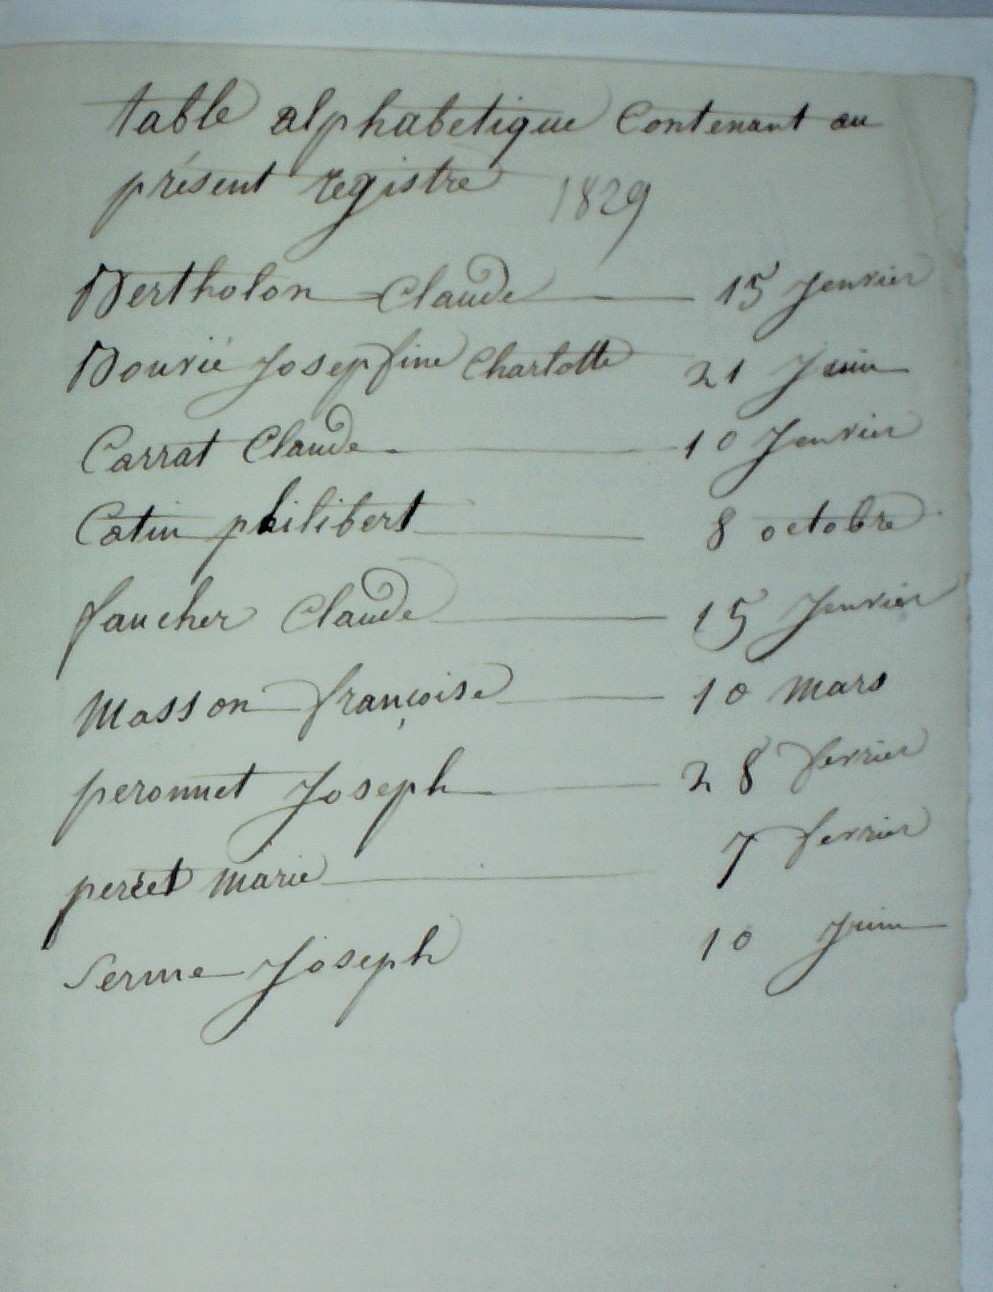 table alphabetique Contenant au
présent registre 1829
Bertholon Claude 15 Jenvier
Bourié Josepfine Charlotte 21 Juin
Carrat Claude 10 Jenvier
Catin philibert 8 octobre
faucher Claude 15 Jenvier
Masson françoise 10 Mars
peronnet Joseph 28 fevrier
perret Marie 7 fevrier
Serme Joseph 10 Juin